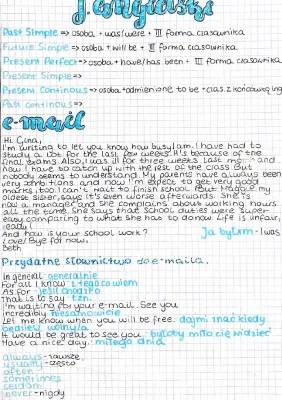 J. angielski
Past Simple => osoba + was/were + III forma czasownika
Future Simple => osoba + will be + III forma czasownika
Present Perfect => osoba + have/has been + III forma czasownika
Present Simple =>
Present Continous => osoba + odmienione to be + czas. z końcówką ing
Past continous =>
e-mail
Hi Gina,
I'm writing to let you know how busy I am. I have had to
study a lot for the last few weeks. It's because of the
final exams. Also, I was ill for three weeks last month and
now I have to catch up with the rest of the class. But
nobody seems to understand. My parents have always been
very ambitions and now I'm expected to get very good
marks, too. I can't wait to finish school. But Maggie, my
oldest sister, says it's even worse afterwards. She is
now a manager and she complains about working hours
all the time. She says that school duties were super
easy comparing to what she has to do now. Life is unfair,
really!
And how is your school work? Ja byłam - I was
Love! Bye for now,
Beth
Przydatne słownictwo do e-maila.
In general - generalnie
For all I know - z tego co wiem
As for - jeśli chodzi o
That is to say - tzn.
I'm waiting for your e-mail. See you
incredibly - niesamowicie
Let me know when you will be free. - dajmi znać kiedy
będziesz wolny/a
It would be great to see you. - byłoby miło cię widzieć
Have a nice day. - miłego dnia
always - zawsze
usually - często
often
sometimes
seldom
never - nigdy